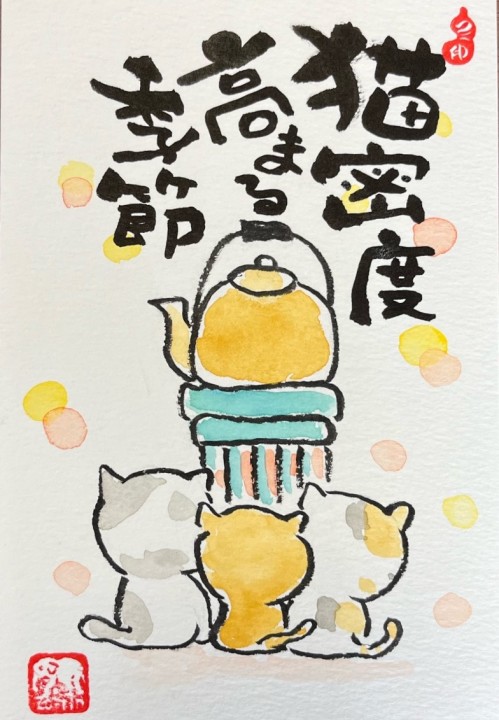 猫密度
高まる
季節